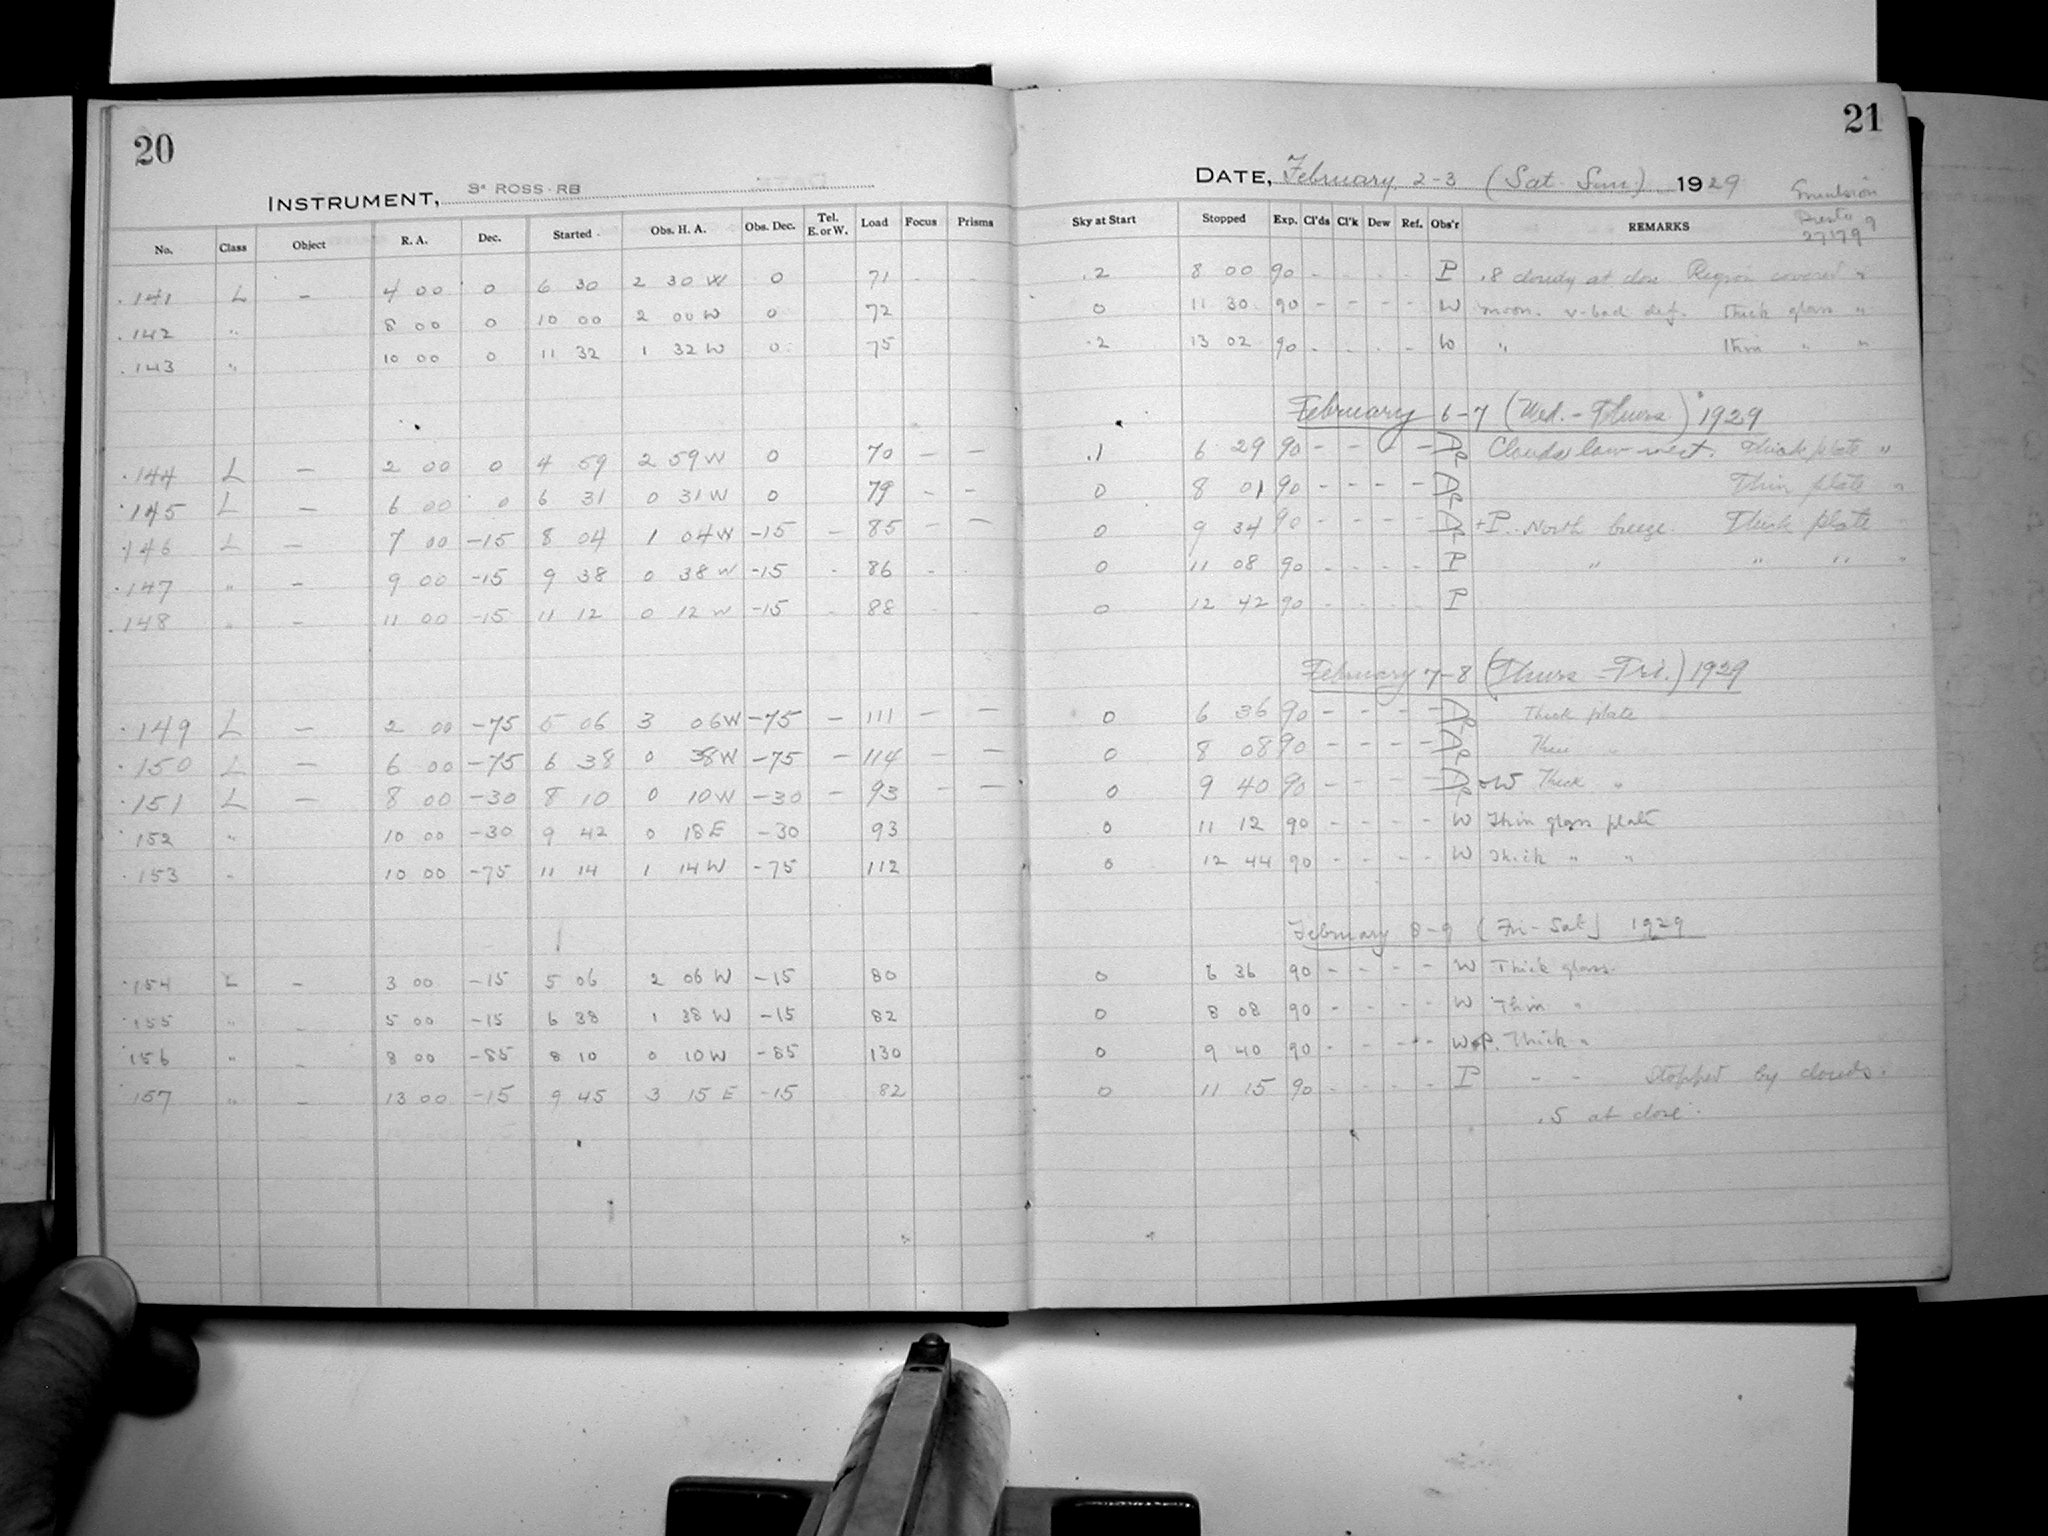 20
INSTRUMENT, 3" ROSS-RB
No. Class Object R. A. Dec. Started Obs. H. A. Obs. Dec. Tel. E. or W. Load Focus Prisms
141 L — 4 00 0 6 30 2 30 W 0 71 - -
142 " 8 00 0 10 00 2 00 W 0 72
143 " 10 00 0 11 32 1 32 W 0 75
144 L — 2 00 0 4 59 2 59 W 0 70 — —
145 L — 6 00 0 6 31 0 31 W 0 79 - -
146 L — 7 00 -15 8 04 1 04 W -15 - 85 - —
147 " - 9 00 -15 9 38 0 38 W -15 - 86 - -
148 " - 11 00 -15 11 12 0 12 W -15 - 88 - -
149 L — 2 00 -75 5 06 3 06 W -75 - 111 — —
150 L — 6 00 -75 6 38 0 38 W -75 - 114 — —
151 L — 8 00 -30 8 10 0 10 W -30 - 93 - —
152 " 10 00 -30 9 42 0 18 E -30 93
153 " 10 00 -75 11 14 1 14 W -75 112
154 L - 3 00 -15 5 06 2 06 W -15 80
155 " - 5 00 -15 6 38 1 38 W -15 82
156 " - 8 00 -85 8 10 0 10 W -85 130
157 " - 13 00 -15 9 45 3 15 E -15 82
21
DATE, February 2-3 (Sat-Sun) 1929
Emulsion
Presto
27179
Sky at Start Stopped Exp. Cl'ds Cl'k Dew Ref. Obs'r REMARKS
.2 8 00 90 - - - - P .8 cloudy at close Region covered "
0 11 30 90 - - - - W moon. v-bad def. thick glass "
.2 13 02 90 - - - - W " thin " "
February 6-7 (Wed.-Thurs) 1929
.1 6 29 90 - - - Clouds low west. Thick plate "
0 8 01 90 - - - - Thin plate "
0 9 34 90 - - - - +P. North breeze. Thick plate
0 11 08 90 - - - - P " " " "
0 12 42 90 - - - - P
February 7-8 (Thurs-Fri.) 1929
0 6 36 90 - - - - Thick plate
0 8 08 90 - - - - Thin "
0 9 40 90 - - - - W Thick "
0 11 12 90 - - - - W Thin glass plate
0 12 44 90 - - - - W Thick " "
February 8-9 (Fri-Sat) 1929
0 6 36 90 - - - - W Thick glass.
0 8 08 90 - - - - W Thin "
0 9 40 90 - - - - W+P. Thick "
0 11 15 90 - - - - P - - Stopped by clouds.
.5 at close.